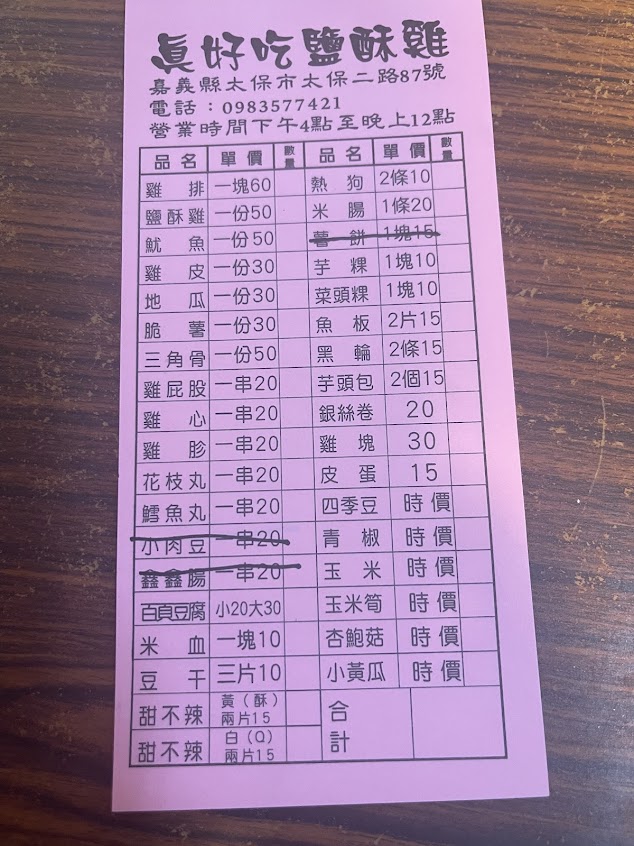 眞好吃鹽酥雞
嘉義縣太保市太保二路87號
電話：0983577421
營業時間下午4點至晚上12點
品名 單價 數量 品名 單價 數量
雞排 一塊60 熱狗 2條10
鹽酥雞 一份50 米腸 1條20
魷魚 一份50 薯餅 1塊15
雞皮 一份30 芋粿 1塊10
地瓜 一份30 菜頭粿 1塊10
脆薯 一份30 魚板 2片15
三角骨 一份50 黑輪 2條15
雞屁股 一串20 芋頭包 2個15
雞心 一串20 銀絲卷 20
雞胗 一串20 雞塊 30
花枝丸 一串20 皮蛋 15
鱈魚丸 一串20 四季豆 時價
小肉豆 一串20 青椒 時價
鑫鑫腸 一串20 玉米 時價
百頁豆腐 小20大30 玉米筍 時價
米血 一塊10 杏鮑菇 時價
豆干 三片10 小黃瓜 時價
甜不辣 黃（酥）兩片15 合計
甜不辣 白（Q）兩片15